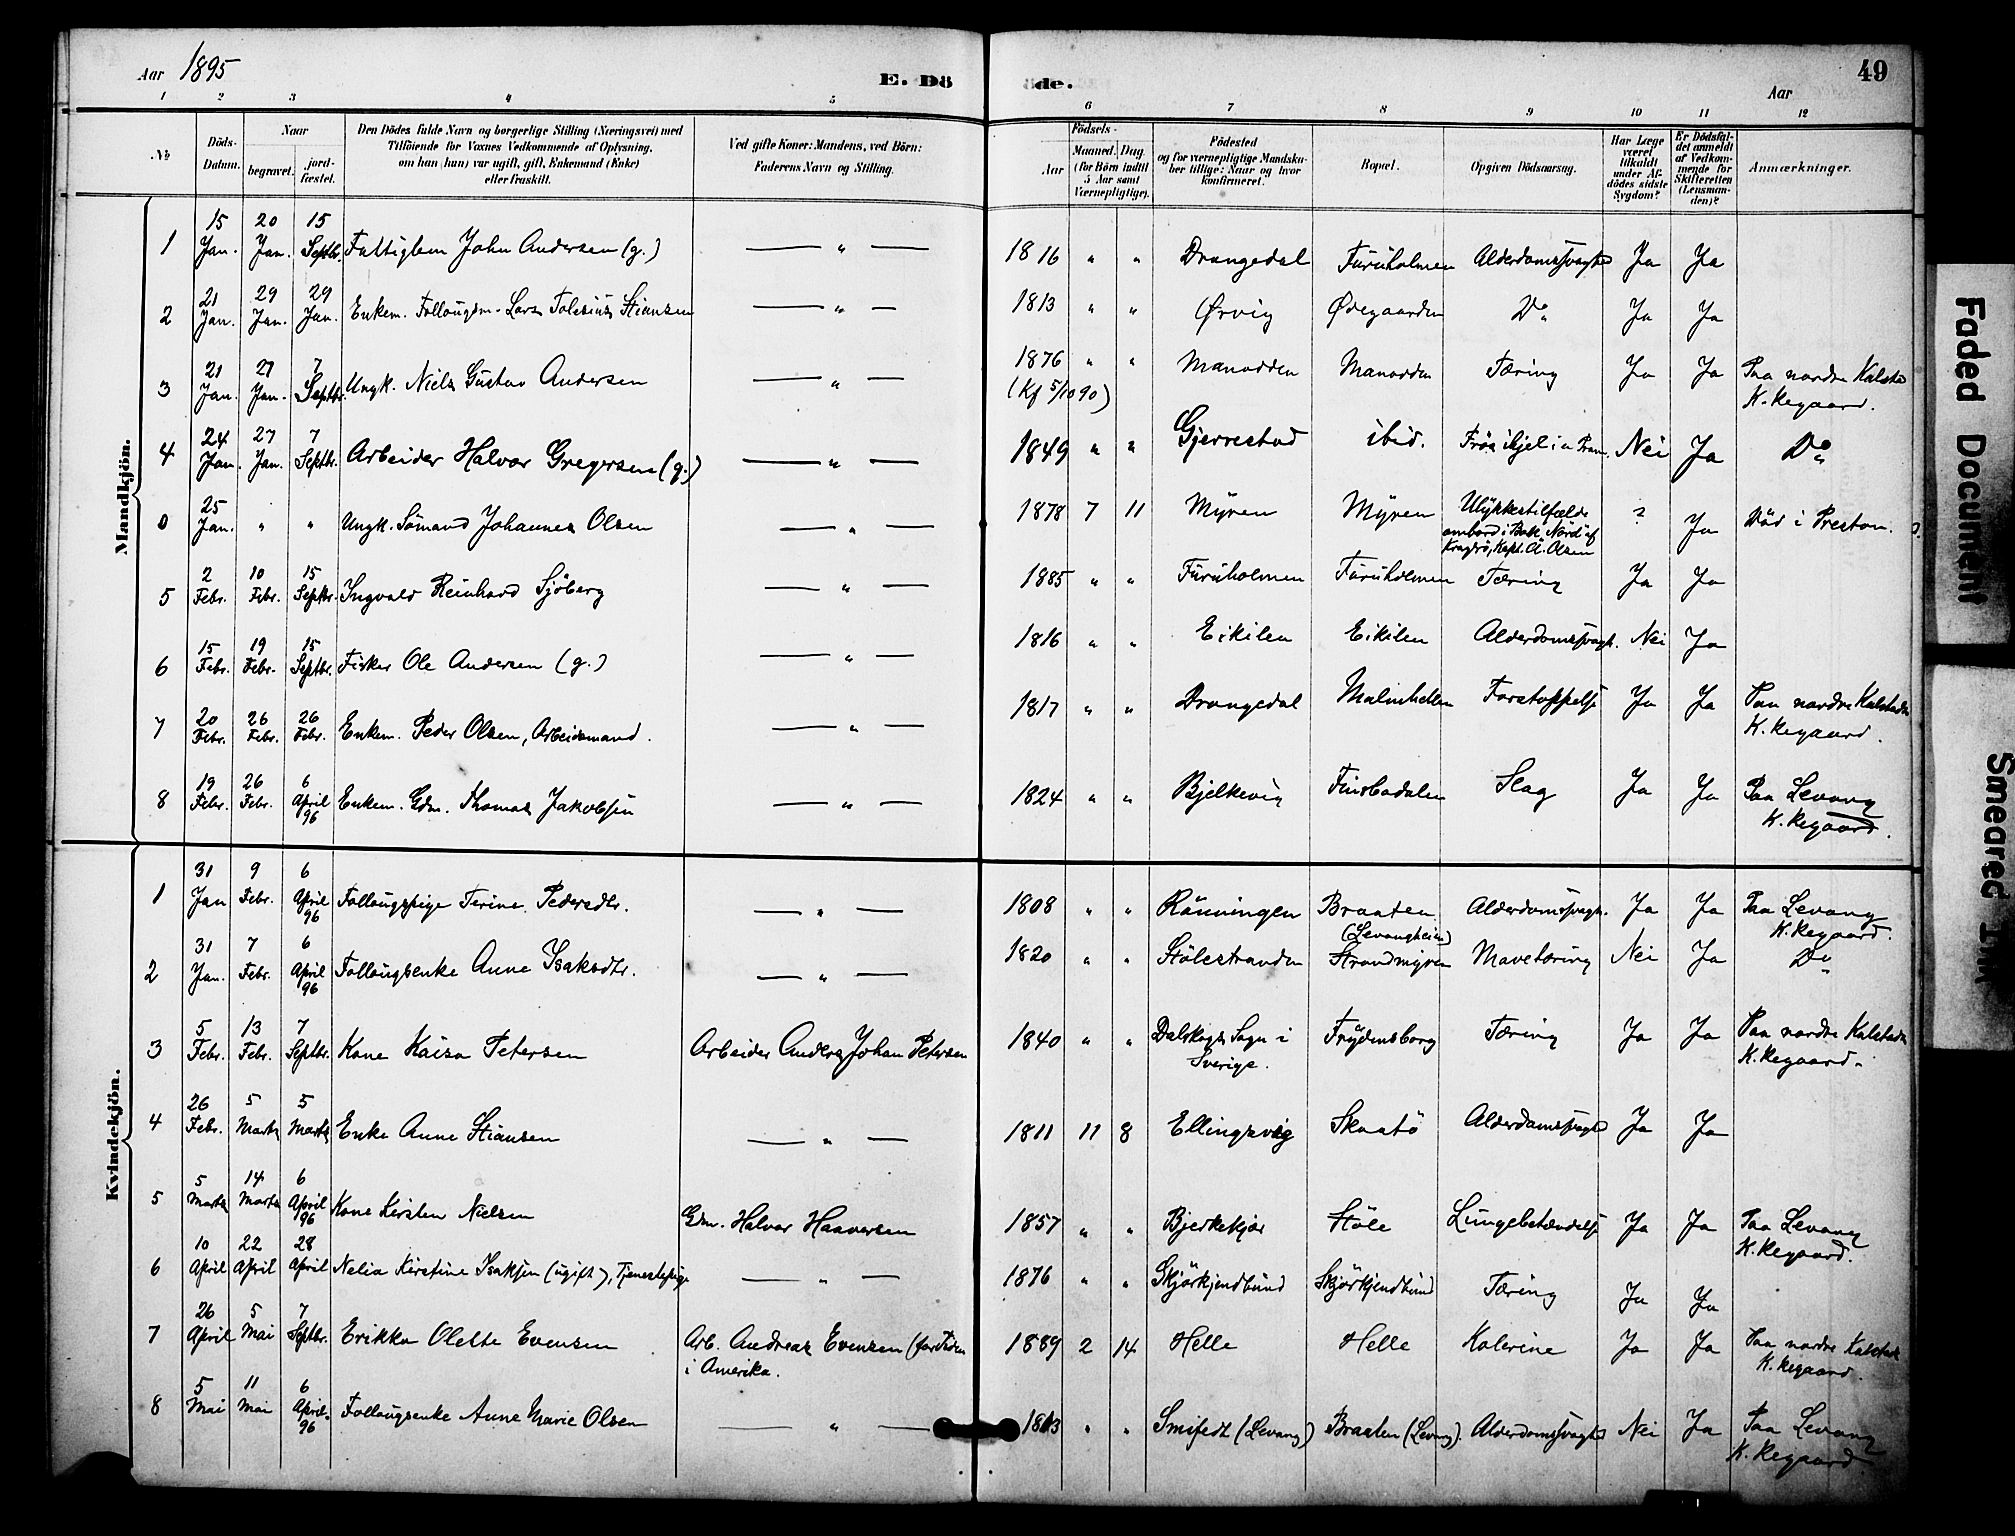 Aar 1895 E. Döde. Aar 49
1 2 3 4 5 6 7 8 9 10 11 12
No. Döds-Datum. Naar begravet. jord-fæstet. Den Dödes fulde Navn og borgerlige Stilling (Næringsvei) med Tilföiende for Voxnes Vedkommende af Oplysning, om han (hun) var ugift, gift, Enkemand (Enke) eller fraskilt. Ved gifte Koner: Mandens, ved Börn: Faderens Navn og Stilling. Födsels- Aar Maaned. Dag. (for Börn indtil 5 Aar samt Værnepligtige). Födested og for værnepligtige Mandskaber tillige: Naar og hvor konfirmeret. Bopæl. Opgiven Dödsaarsag. Har Læge været tilkaldt under Afdödes sidste Sygdom? Er Dödsfaldet anmeldt af Vedkommende for Skifteretten (Lensmanden)? Anmærkninger.
Mandkjön.
1 15 Jan. 20 Jan. 15 Septbr. Fattiglem John Andersen (g.) — " — 1816 " " Drangedal Furuholmen Alderdomssvaghed Ja Ja
2 21 Jan. 29 Jan. 29 Jan. Enkem. Follaugdm. Lars Tolesius Stiansen — " — 1813 " " Ørvig Ødegaarden Do Ja Ja
3 21 Jan. 27 Jan. 7 Septbr. Ungk. Niels Gustav Andersen — " — 1876 " " (Kf 5/10 90) Manodden Manodden Tæring Ja Ja Paa nordre Kalsta K.kegaard.
4 24 Jan. 27 Jan. 7 Septbr. Arbeider Halvor Gregersen (g.) — " — 1849 " " Gjerrestad ibid. Frös ihjel i en Pram. Nei Ja Do
0 25 Jan. " " Ungk. Sömand Johannes Olsen — " — 1878 7 11 Myren Myren Ulykkestilfælde ombord i Bark. Nord af Kragerö, Kapt. A. Olsen ? Ja Död i Preston.
5 2 Febr. 10 Febr. 15 Septbr. Ingvald Reinhard Sjöberg — " — 1885 " " Furuholmen Furuholmen Tæring Ja Ja
6 15 Febr. 19 Febr. 15 Septbr. Fisker Ole Andersen (g.) — " — 1816 " " Eikilen Eikilen Alderdomssvagh. Nei Ja
7 20 Febr. 26 Febr. 26 Febr. Enkem. Peder Olsen, Arbeidsmand. — " — 1817 " " Drangedal Malmhellen Forstoppelse Ja Ja Paa nordre Kalstad K.kegaard.
8 19 Febr. 26 Febr. 6 April 96 Enkem. Gdm. Thomas Jakobsen — " — 1824 " " Bjelkevig Finsbudalen Slag Ja Ja Paa Levang K.kegaard.
Kvindekjön.
1 31 Jan 9 Febr. 6 April 96 Follaugspige Terine Pedersdtr. — " — 1808 " " Rönningen Braaten (Levangheien) Alderdomssvagh. Ja Ja Paa Levang K.kegaard.
2 31 Jan. 7 Febr. 6 April 96 Follaugsenke Anne Isaksdtr. — " — 1820 " " Stölestranden Strandmyren Mavetæring Nei Ja Do
3 5 Febr. 13 Febr. 7 Septbr. Kone Kaisa Petersen Arbeider Anders Johan Petersen 1840 " " Dalskogs Sogn i Sverige. Frydensborg Tæring Ja Ja Paa nordre Kalstad K.kegaard.
4 26 Febr. 5 Marts 5 Marts Enke Anne Stiansen — " — 1811 11 8 Ellingsvig Skaatö Alderdomssvaghd Ja Ja
5 5 Marts 14 Marts 6 April 96 Kone Kirsten Nielsen Gdm. Halvor Haaversen 1857 " " Bjerkekjær Stöle Lungebetændelse Ja Ja Paa Levang K.kegaard.
6 10 April 22 April 28 April Nelia Kirstine Isaksen (ugift), Tjenestepige — " — 1876 " " Skjörkjendbund Skjörkjendbund Tæring Ja Ja
7 26 April 5 Mai 7 Septbr. Erikka Olette Evensen Arb. Andreas Evensen (for Tiden i Amerika. 1889 2 14 Helle Helle Kolerine Ja Ja Paa nordre Kalstad K.kegaard.
8 5 Mai 11 Mai 6 April 96 Follaugsenke Anne Marie Olsen — " — 1813 " " Smifedt (Levang) Braaten (Levang) Alderdomssvaghd Nei Ja Paa Levang K.kegaard.
Faded Document
Smeared Ink